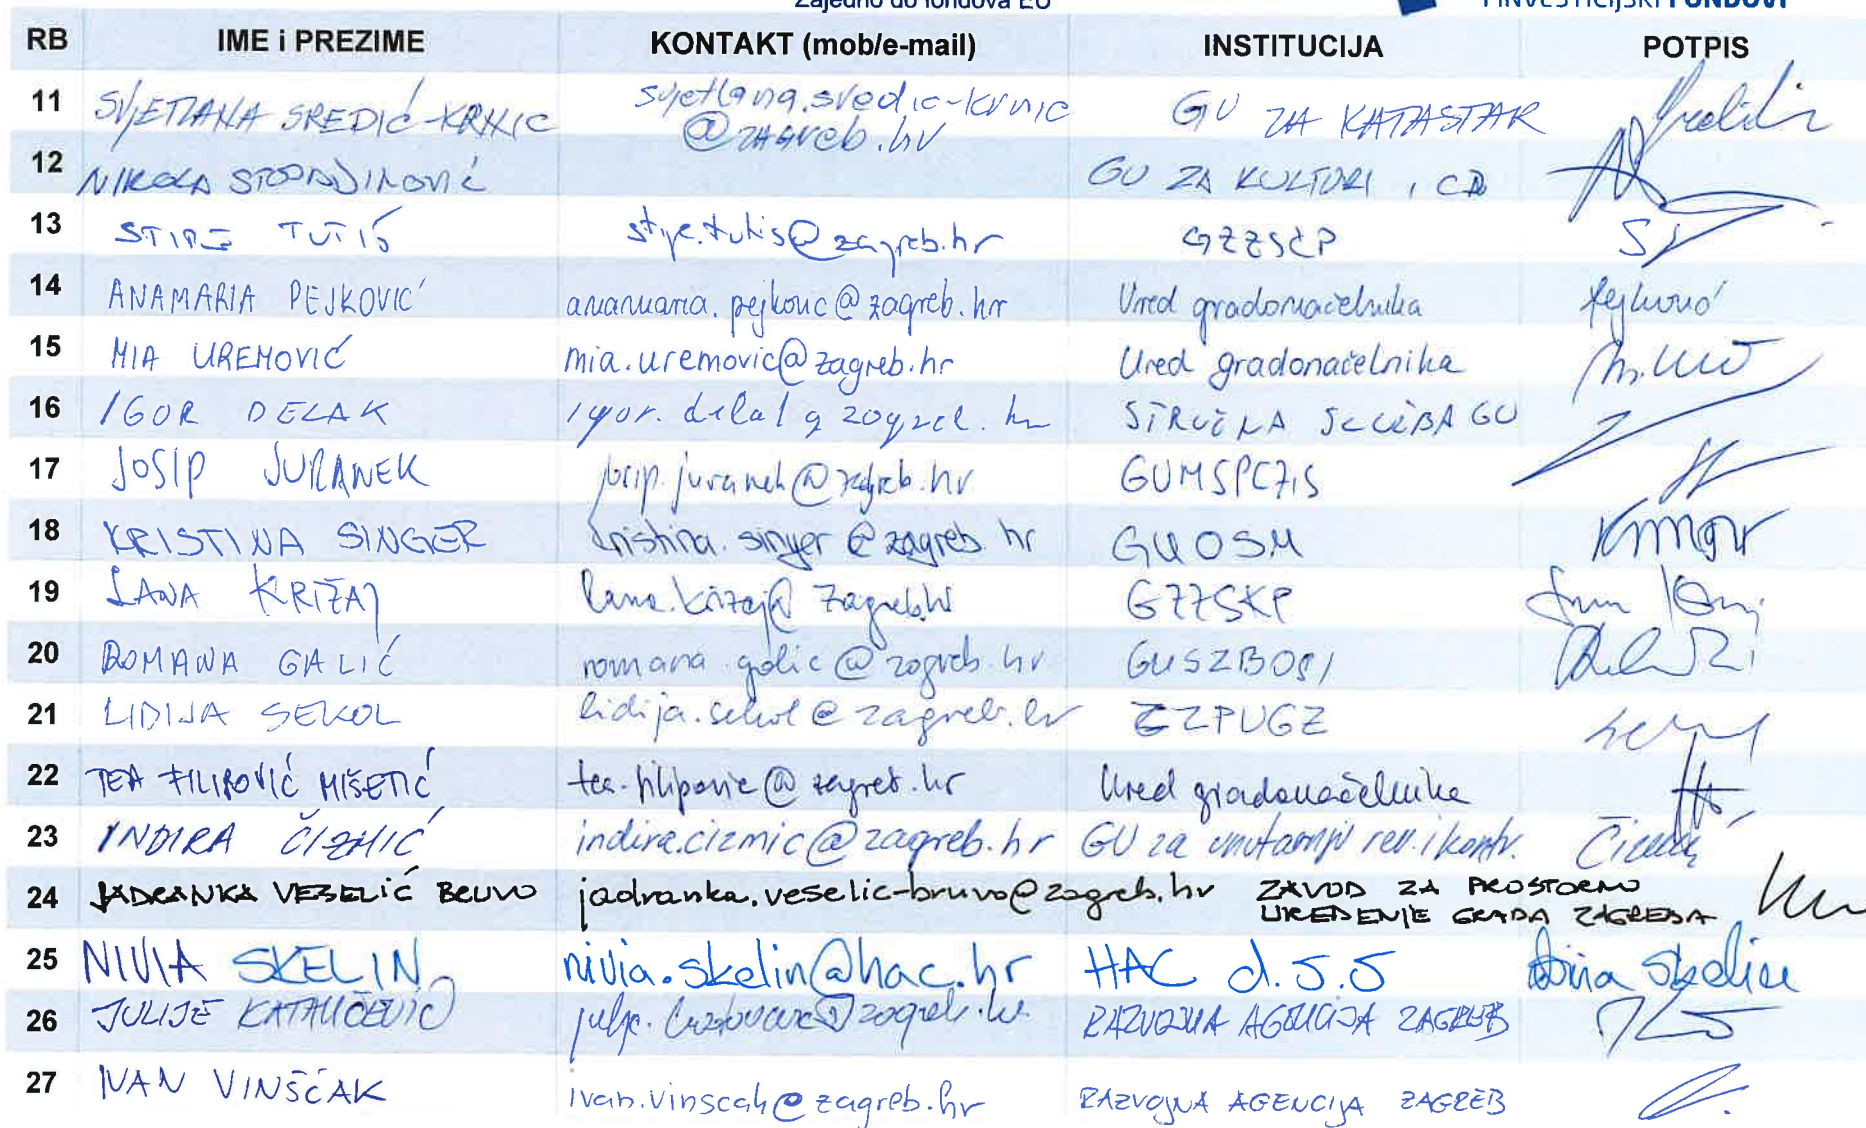 Zajedno do fondova EU
I INVESTICIJSKI FONDOVI
RB IME i PREZIME KONTAKT (mob/e-mail) INSTITUCIJA POTPIS
11 SVJETLANA SREDIĆ-KRNIC svjetlana.sredic-krnic GU ZA KATASTAR
@zagreb.hr
12 NIKOLA STOJADINOVIĆ GU ZA KULTURI
13 STIPE TUTIŠ stipe.tutis@zagreb.hr
14 ANAMARIA PEJKOVIĆ anamaria.pejkovic@zagreb.hr Ured gradonačelnika Pejković
15 MIA UREMOVIĆ mia.uremovic@zagreb.hr Ured gradonačelnika
16 IGOR DELAK STRUČNA SLUŽBA GU
17 JOSIP JURANEK josip.juranek@zagreb.hr
18 KRISTINA SINGER kristina.singer@zagreb.hr GUOSM
19 LANA KRIŽAJ lana.krizaj@zagreb.hr GZZSKP
20 ROMANA GALIĆ romana.galic@zagreb.hr
21 LIDIJA SEKOL lidija.sekol@zagreb.hr ZZPUGZ
22 TEA FILIPOVIĆ MIŠETIĆ tea.filipovic@zagreb.hr Ured gradonačelnika
23 INDIRA ČIZMIĆ indira.cizmic@zagreb.hr GU za unutarnju rev. i kontr.
24 JADRANKA VESELIĆ BRUVO jadranka.veselic-bruvo@zagreb.hr ZAVOD ZA PROSTORNO
UREĐENJE GRADA ZAGREBA
25 NIVIA SKELIN nivia.skelin@hac.hr HAC d.o.o Skelin
26 JULIJE RAZVOJNA AGENCIJA ZAGREB
27 IVAN VINŠĆAK ivan.vinscak@zagreb.hr RAZVOJNA AGENCIJA ZAGREB